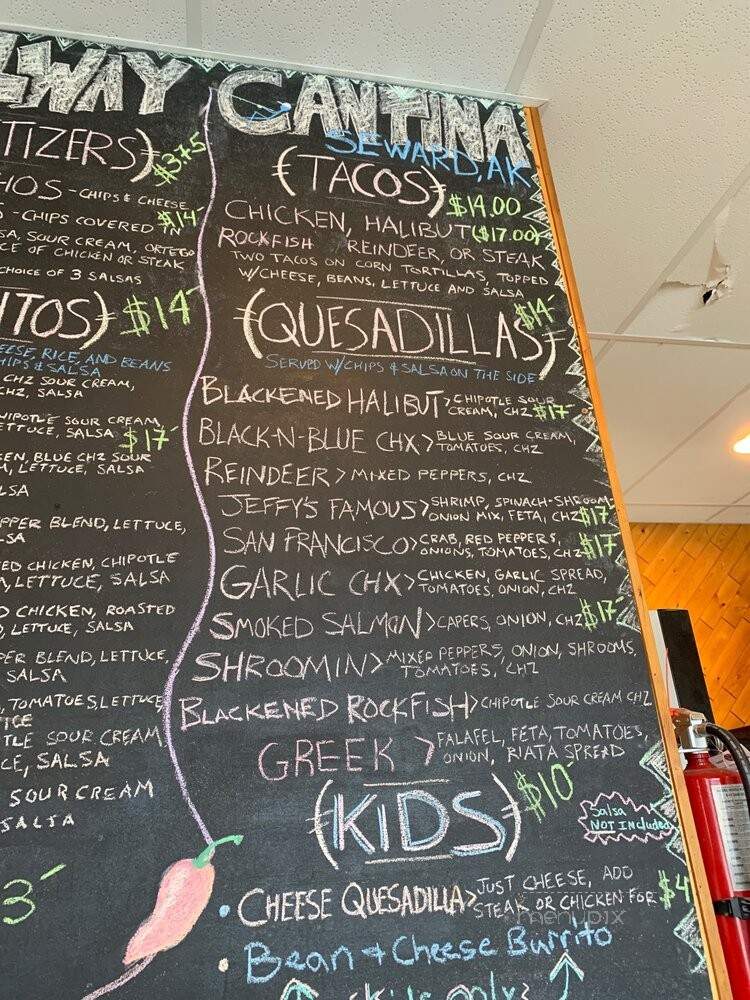 LWAY CANTINA
SEWARD, AK
TIZERS) $3.75
HOS - CHIPS & CHEESE
- CHIPS COVERED IN $14
SA, SOUR CREAM, ORTEGO
CE OF CHICKEN OR STEAK
CHOICE OF 3 SALSAS
ITOS) $14
EESE, RICE, AND BEANS
HIPS & SALSA
CHZ SOUR CREAM,
CHZ, SALSA
HIPOTLE SOUR CREAM,
ETTUCE, SALSA $17
KEN, BLUE CHZ SOUR
M, LETTUCE, SALSA
LSA
PPER BLEND, LETTUCE,
LSA
ED CHICKEN, CHIPOTLE
M, LETTUCE, SALSA
D CHICKEN, ROASTED
LETTUCE, SALSA
PER BLEND, LETTUCE,
SALSA
, TOMATOES, LETTUCE
TLE SOUR CREAM,
CE, SALSA
SOUR CREAM
SALSA
3
(TACOS) $14.00
CHICKEN, HALIBUT ($17.00)
ROCKFISH REINDEER, OR STEAK
TWO TACOS ON CORN TORTILLAS, TOPPED
W/CHEESE, BEANS, LETTUCE AND SALSA
(QUESADILLAS) $14
SERVED W/CHIPS & SALSA ON THE SIDE
BLACKENED HALIBUT > CHIPOTLE SOUR
CREAM, CHZ $17
BLACK-N-BLUE CHX > BLUE SOUR CREAM,
TOMATOES, CHZ
REINDEER > MIXED PEPPERS, CHZ
JEFFY'S FAMOUS > SHRIMP, SPINACH-SHROOM-
ONION MIX, FETA, CHZ $17
SAN FRANCISCO > CRAB, RED PEPPERS,
ONIONS, TOMATOES, CHZ $17
GARLIC CHX > CHICKEN, GARLIC SPREAD,
TOMATOES, ONION, CHZ
SMOKED SALMON > CAPERS, ONION, CHZ $17
SHROOMIN > MIXED PEPPERS, ONION, SHROOMS,
TOMATOES, CHZ
BLACKENED ROCKFISH > CHIPOTLE SOUR CREAM CHZ
GREEK > FALAFEL, FETA, TOMATOES,
ONION, RIATA SPREAD
(KIDS) $10
Salsa
NOT Included
• CHEESE QUESADILLA > JUST CHEESE, ADD
STEAK OR CHICKEN FOR $4
• Bean & Cheese Burrito
(Kids only)
menupix